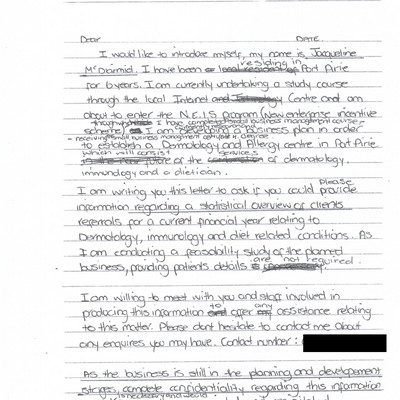 Dear DATE
I would like to introduce myself, my name is, Jacqueline
residing in
McDiarmid. I have been Port Pirie
for 6 years. I am currently undertaking a study course
through the local Internet Centre and am
about to enter the N.E.I.S Program (New enterprise incentive
I have completed small business management course -
scheme) I am developing a business plan in order
- receiving small business management certificate 4 degree
to establish a Dermatology and Allergy centre in Port Pirie
which will consist services
of the of dermatology,
immunology and a dietician.
Please
I am writing you this letter to ask if you could provide
information regarding a statistical overview of clients
referrals for a current financial year relating to
Dermatology, immunology and diet related conditions. As
I am conducting a feasability study of the planned
are not required.
business, providing patients details
I am willing to meet with you and staff involved in
to any
producing this information offer assistance relating
to this matter. Please dont hesitate to contact me about
any enquires you may have. Contact number :
As the business is still in the planning and developement
stages, complete confidentiality regarding this information
is necessary and would